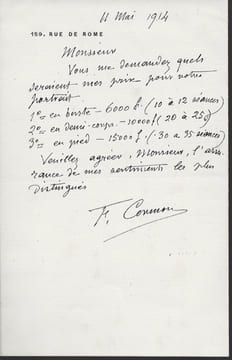 11 Mai 1914
159, RUE DE ROME
Monsieur
Vous me demandez quels
seraient mes prix pour votre
portrait
1º = en buste - 6000 f. (10 à 12 séances)
2º = en demi-corps - 10000 f (20 à 25)
3º = en pied - 15000 f. (30 à 35 séances)
Veuillez agréer, Monsieur, l'assu
rance de mes sentiments les plus
Distingués
F. Cormon